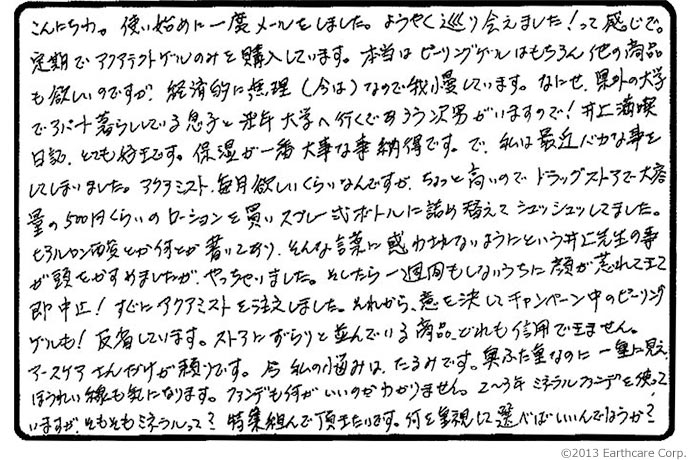 こんにちわ。使い始めに一度メールをしました。ようやく巡り会えました！って感じで。
定期でアクアテクトゲルのみを購入しています。本当はピーリングゲルはもちろん他の商品
も欲しいのですが、経済的に無理（今は）なので我慢しています。なにせ、県外の大学
でアパート暮らししている息子と来年大学へ行くであろう次男がいますので！井上満喫
日記、とても好きです。保湿が一番大事な事納得です。で、私は最近バカな事を
してしまいました。アクアミスト、毎月欲しいくらいなんですが、ちょっと高いのでドラッグストアで大容
量の500円くらいのローションを買いスプレー式ボトルに詰め替えてシュッシュッしてました。
ヒアルロン酸とか何とか書いており、そんな言葉に惑わされないようにという井上先生の事
が頭をかすめましたが、やっちゃいました。そしたら一週間もしないうちに顔が荒れてきて
即中止！すぐにアクアミストを注文しました。それから、意を決してキャンペーン中のピーリング
ゲルも！反省しています。ストアにずらりと並んでいる商品、どれも信用できません。
アースケアさんだけが頼りです。今私の悩みは、たるみです。奥ぶた重なのに一重に見え、
ほうれい線も気になります。ファンデも何がいいのかわかりません。2〜3年ミネラルファンデを使って
いますが、そもそもミネラルって？特集組んで頂きたいです。何を重視して選べばいいんでしょうか？
©2013 Earthcare Corp.